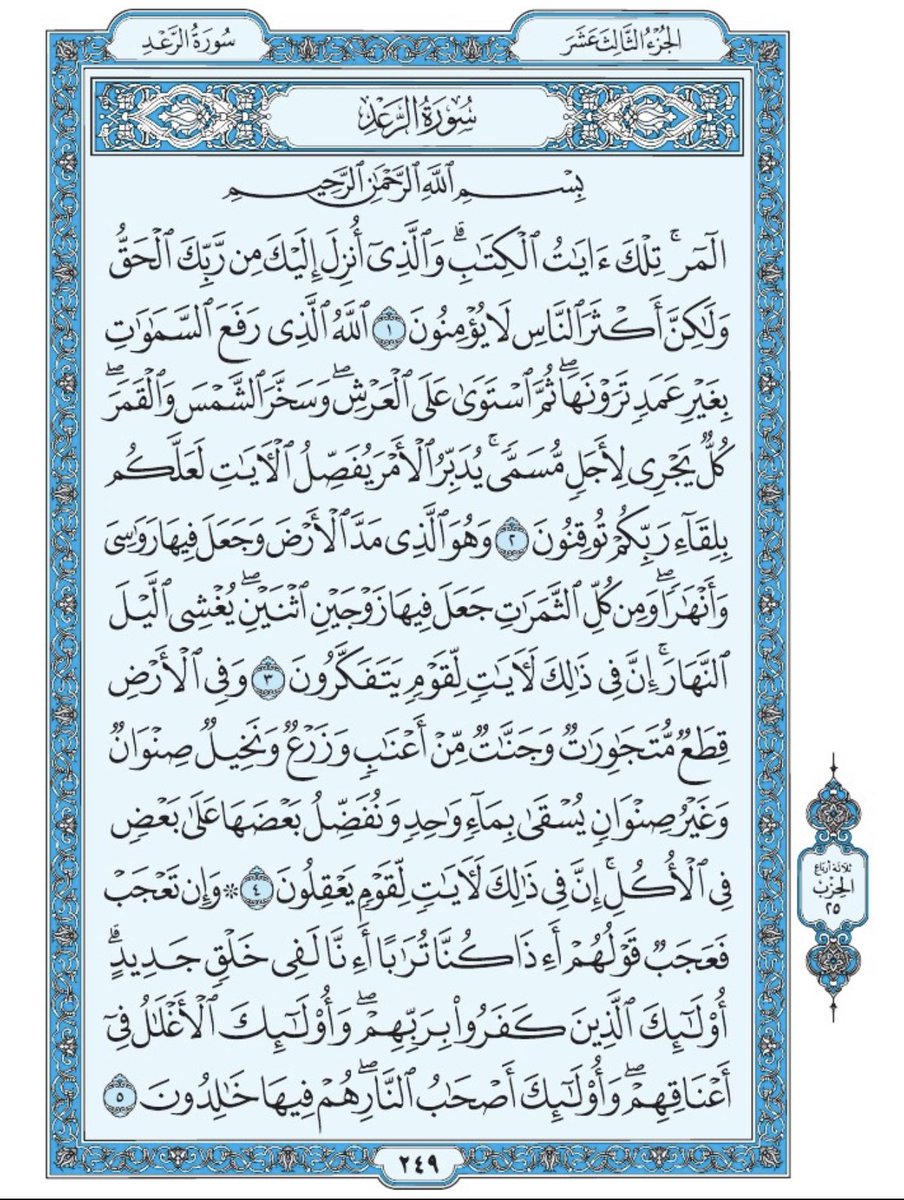 الجُزْءُ الثَّالِثَ عَشَرَ
سُورَةُ الرَّعْدِ
سُورَةُ الرَّعْدِ
بِسْمِ ٱللَّهِ ٱلرَّحْمَٰنِ ٱلرَّحِيمِ
الٓمٓرۚ تِلْكَ ءَايَٰتُ ٱلْكِتَٰبِۗ وَٱلَّذِىٓ أُنزِلَ إِلَيْكَ مِن رَّبِّكَ ٱلْحَقُّ
وَلَٰكِنَّ أَكْثَرَ ٱلنَّاسِ لَا يُؤْمِنُونَ ١ ٱللَّهُ ٱلَّذِى رَفَعَ ٱلسَّمَٰوَٰتِ
بِغَيْرِ عَمَدٍ تَرَوْنَهَاۖ ثُمَّ ٱسْتَوَىٰ عَلَى ٱلْعَرْشِۖ وَسَخَّرَ ٱلشَّمْسَ وَٱلْقَمَرَۖ
كُلٌّ يَجْرِى لِأَجَلٍ مُّسَمًّىۚ يُدَبِّرُ ٱلْأَمْرَ يُفَصِّلُ ٱلْءَايَٰتِ لَعَلَّكُم
بِلِقَآءِ رَبِّكُمْ تُوقِنُونَ ٢ وَهُوَ ٱلَّذِى مَدَّ ٱلْأَرْضَ وَجَعَلَ فِيهَا رَوَٰسِىَ
وَأَنْهَٰرًاۖ وَمِن كُلِّ ٱلثَّمَرَٰتِ جَعَلَ فِيهَا زَوْجَيْنِ ٱثْنَيْنِۖ يُغْشِى ٱلَّيْلَ
ٱلنَّهَارَۚ إِنَّ فِى ذَٰلِكَ لَءَايَٰتٍ لِّقَوْمٍ يَتَفَكَّرُونَ ٣ وَفِى ٱلْأَرْضِ
قِطَعٌ مُّتَجَٰوِرَٰتٌ وَجَنَّٰتٌ مِّنْ أَعْنَٰبٍ وَزَرْعٌ وَنَخِيلٌ صِنْوَانٌ
وَغَيْرُ صِنْوَانٍ يُسْقَىٰ بِمَآءٍ وَٰحِدٍ وَنُفَضِّلُ بَعْضَهَا عَلَىٰ بَعْضٍ
فِى ٱلْأُكُلِۚ إِنَّ فِى ذَٰلِكَ لَءَايَٰتٍ لِّقَوْمٍ يَعْقِلُونَ ٤ ۞ وَإِن تَعْجَبْ
فَعَجَبٌ قَوْلُهُمْ أَءِذَا كُنَّا تُرَٰبًا أَءِنَّا لَفِى خَلْقٍ جَدِيدٍۗ
أُو۟لَٰٓئِكَ ٱلَّذِينَ كَفَرُوا۟ بِرَبِّهِمْۖ وَأُو۟لَٰٓئِكَ ٱلْأَغْلَٰلُ فِىٓ
أَعْنَاقِهِمْۖ وَأُو۟لَٰٓئِكَ أَصْحَٰبُ ٱلنَّارِۖ هُمْ فِيهَا خَٰلِدُونَ ٥
ثلاثة أرباع
الحزب
٢٥
٢٤٩